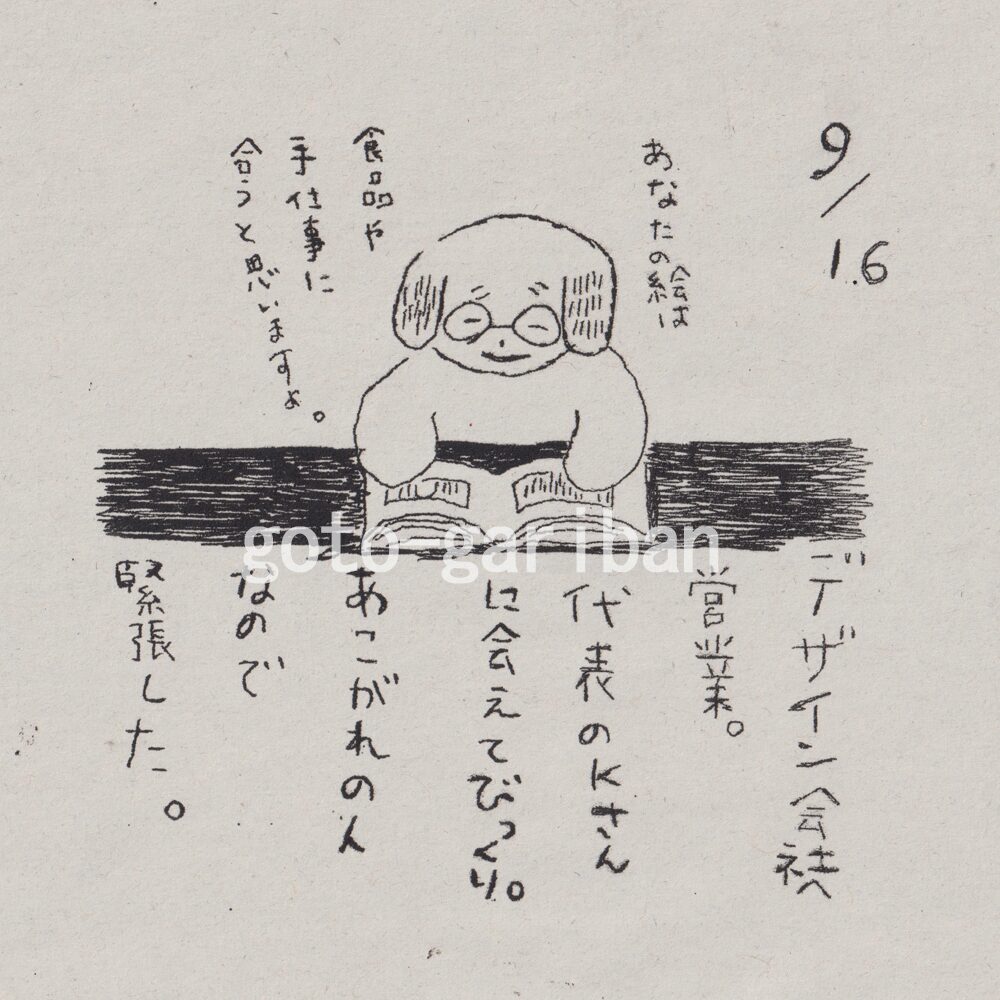 9/16
あなたの絵は
食品や
手仕事に
合うと思いますよ。
goto gariban
デザイン会社へ
営業。
代表のKさん
に会えてびっくり。
あこがれの人
なので
緊張した。